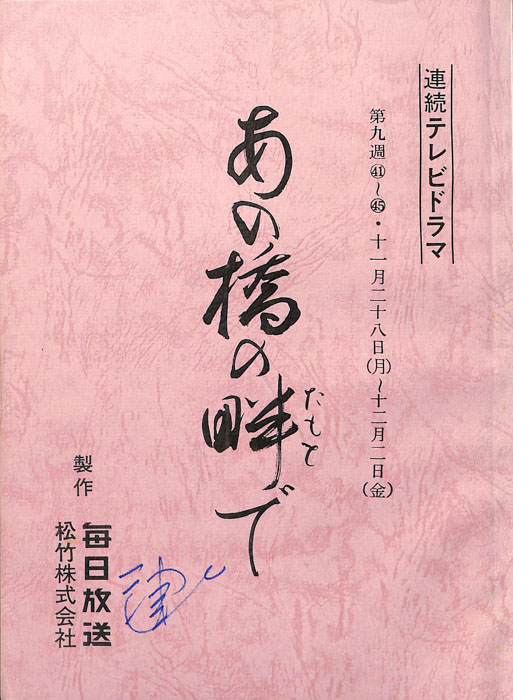 連続テレビドラマ
第九週㊶〜㊺・十一月二十八日(月)〜十二月二日(金)
あの橋の畔で
たもと
製作
毎日放送
松竹株式会社